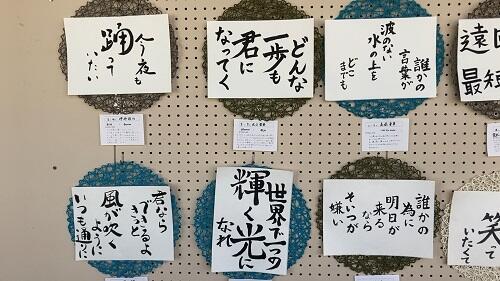 今夜も
踊って
いたい
どんな
一歩も
君に
なってく
誰かの
言葉が
波のない
水の上を
どこ
までも
遠回
最短
君なら
できるよ
きっと
風が吹く
ように
いつも通りに
世界で一つの
輝く光に
なれ
誰かの
為に
明日が
来る
なら
そいつが
嫌い
笑って
いたくて